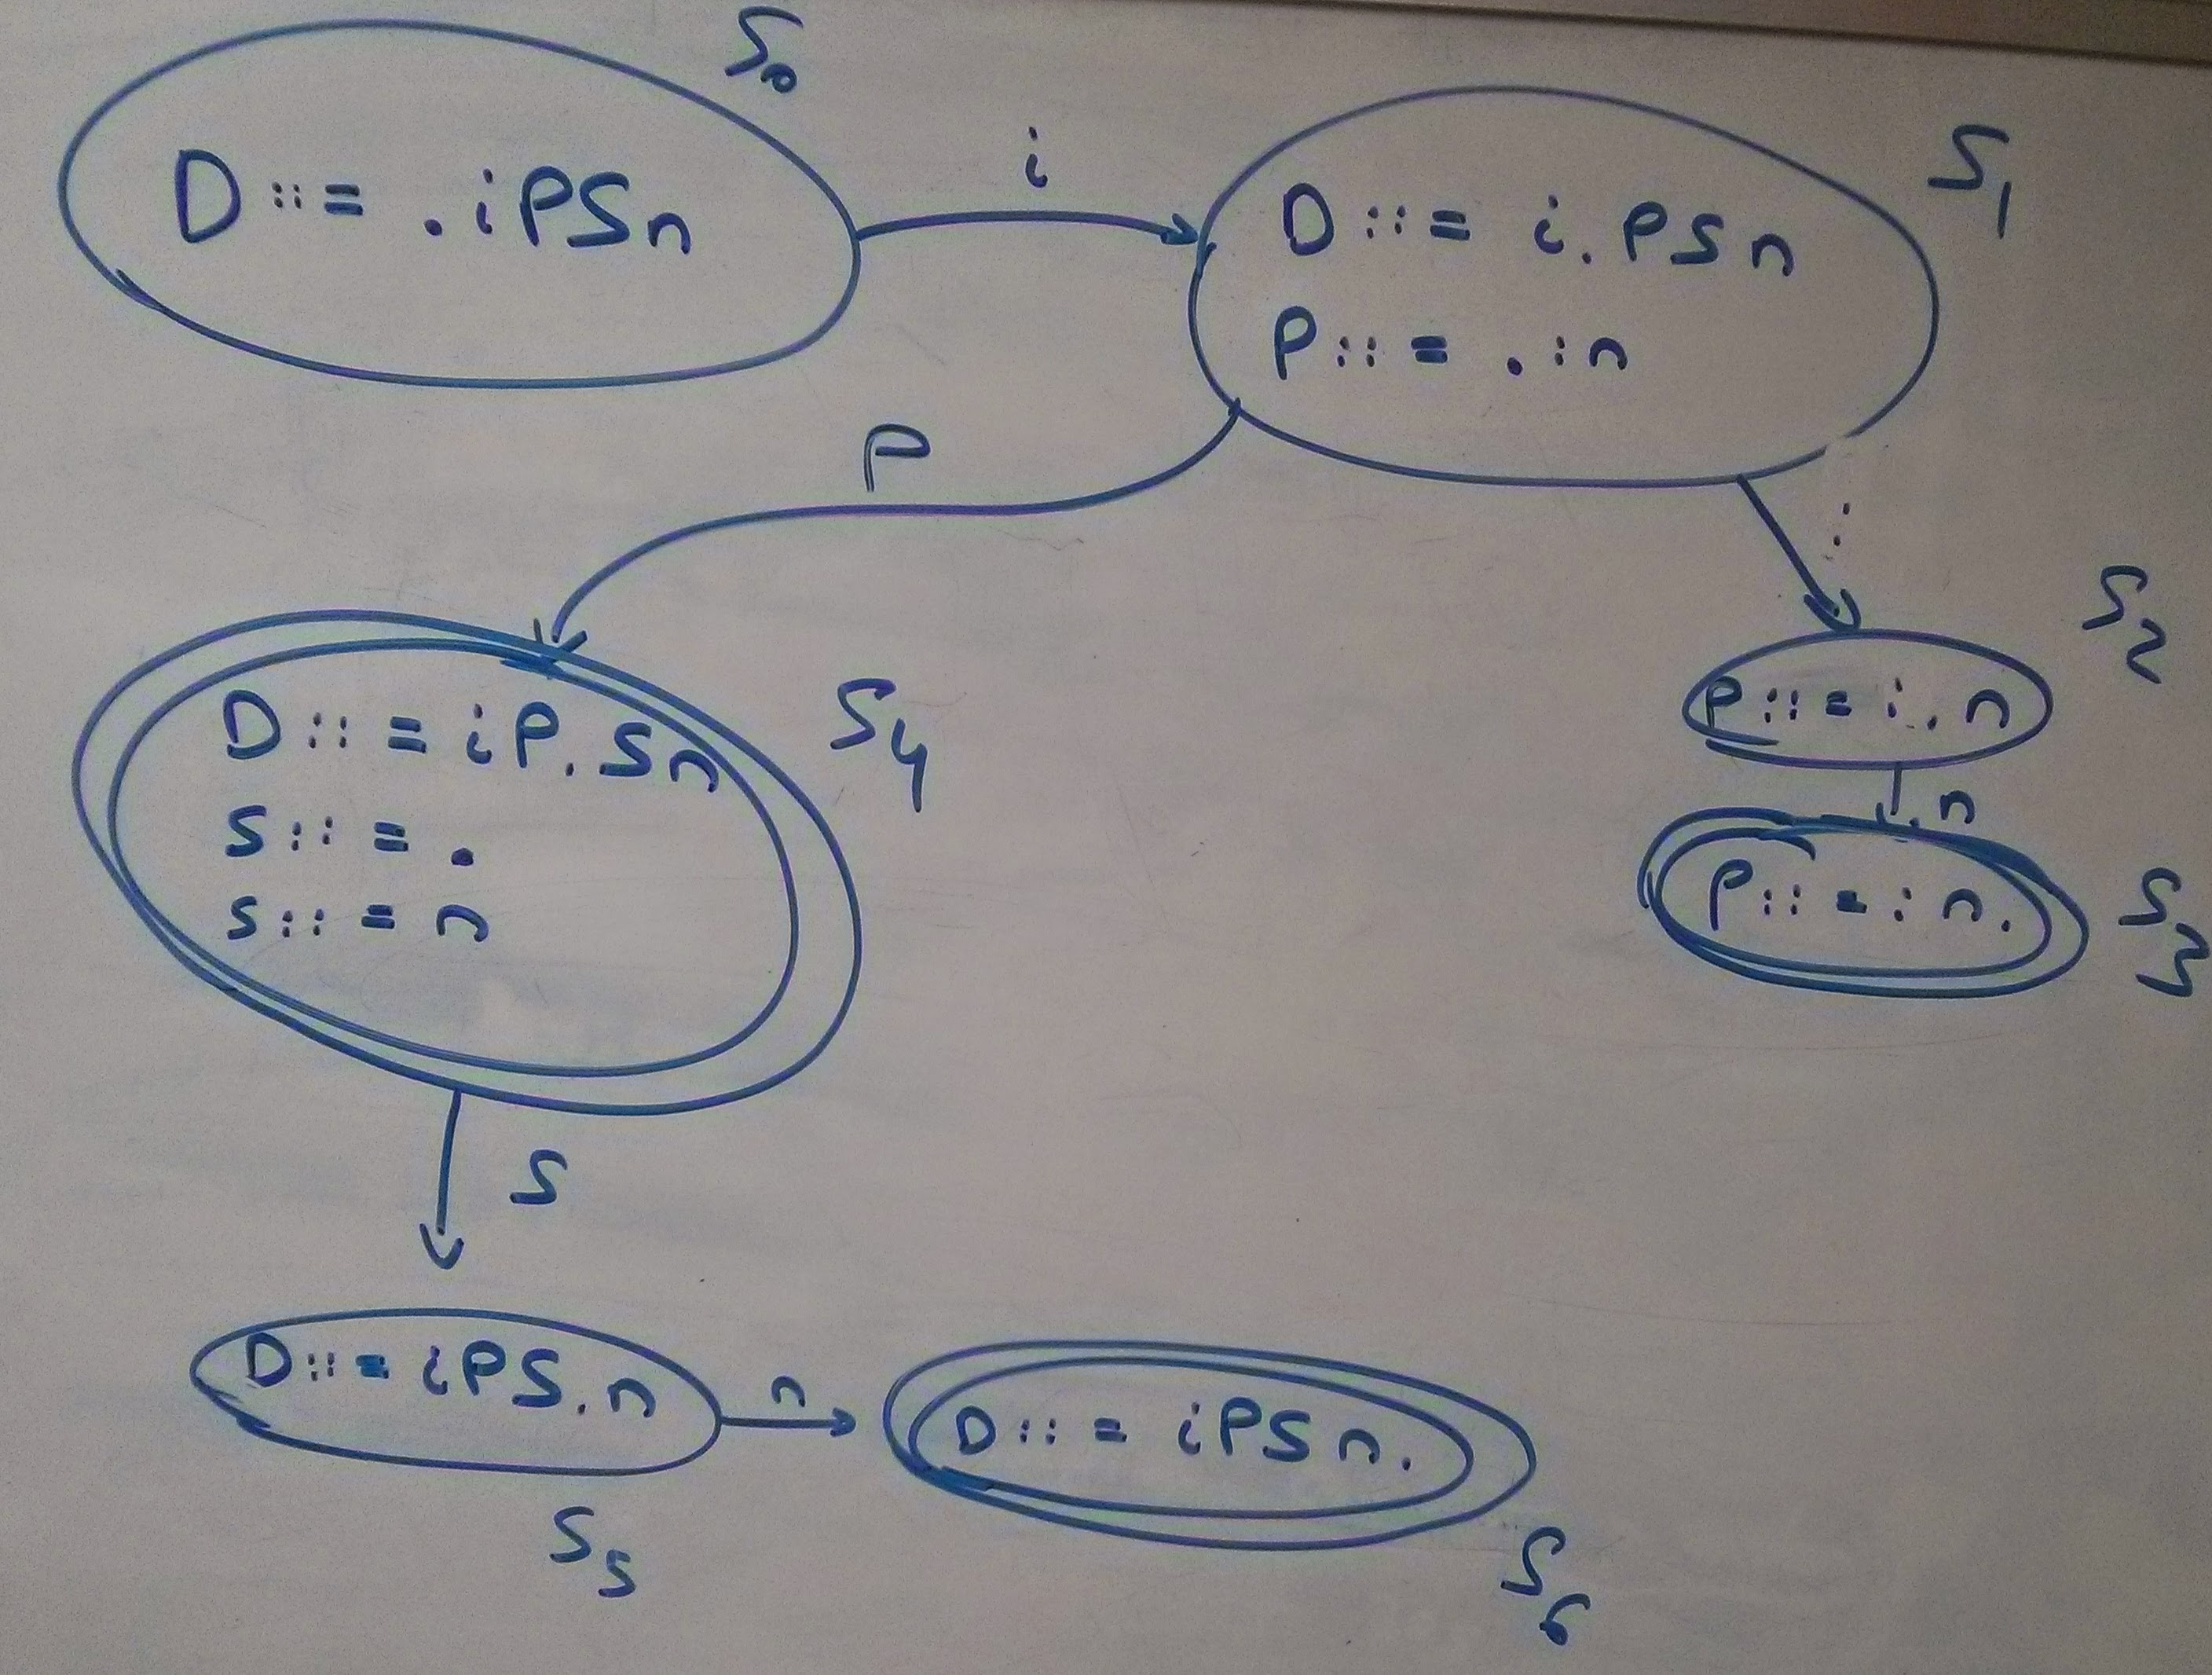 S0
D ::= .iPSn
i
S1
D ::= i.PSn
P ::= .:n
P
:
S2
P ::= :.n
n
P ::= :n.
S3
S4
D ::= iP.Sn
S ::= .
S ::= n
S
D ::= iPS.n
S5
n
D ::= iPSn.
S6